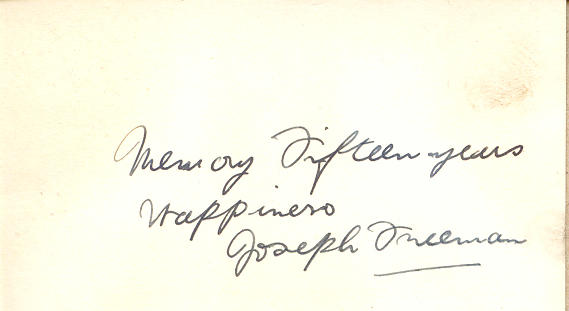 Memory Fifteen years
Happiness
Joseph Freeman